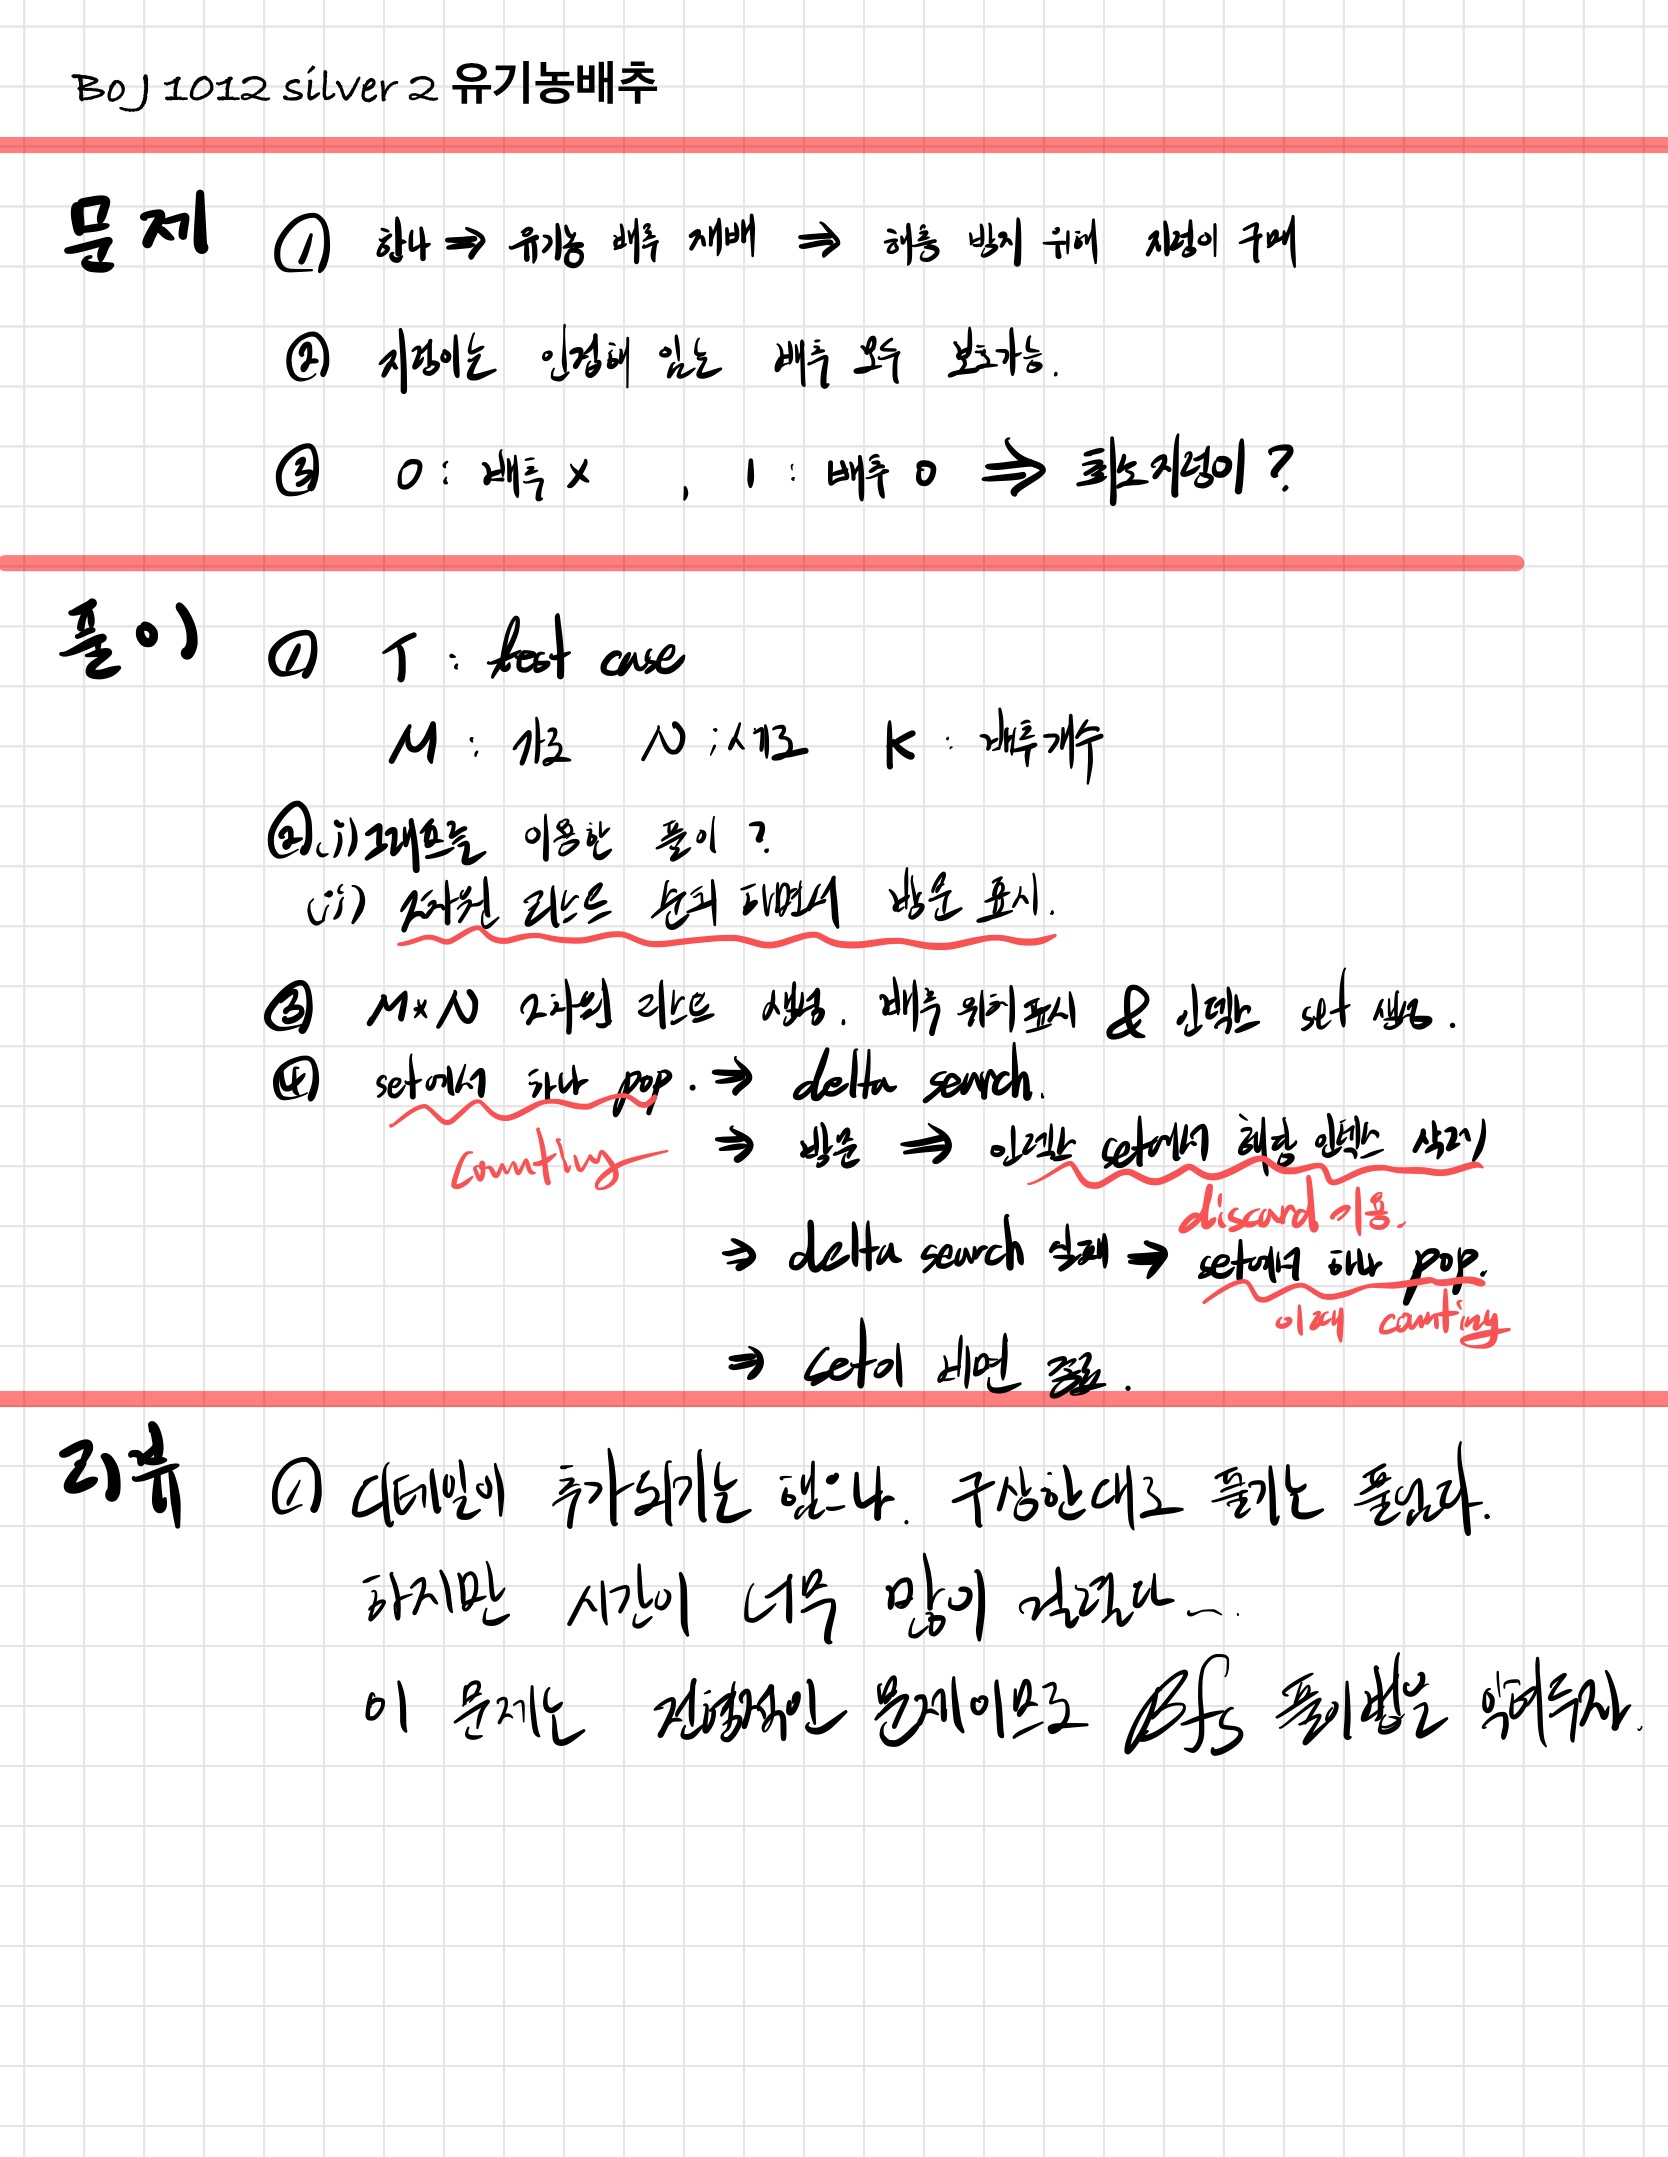 BoJ 1012 silver 2 유기농배추
문제 ① 한나 ⇒ 유기농 배추 재배 ⇒ 해충 방지 위해 지렁이 구매
② 지렁이는 인접해 있는 배추 모두 보호가능.
③ 0 : 배추 x , 1 : 배추 0 ⇒ 최소지렁이?
풀이 ① T : test case
M : 가로 N ; 세로 K : 배추개수
② i) 그래프를 이용한 풀이?
ii) 2차원 리스트 순회 하면서 방문 표시.
③ M×N 2차원 리스트 생성. 배추 위치 표시 & 인덱스 set 생성.
④ set에서 하나 pop. ⇒ delta search.
counting ⇒ 방문 ⇒ 인덱스 set에서 해당 인덱스 삭제
discard 이용.
⇒ delta search 실패 → set에서 하나 pop.
이때 counting
⇒ set이 비면 종료.
리뷰 ① 디테일이 추가되기는 했으나. 구상한대로 풀기는 풀었다.
하지만 시간이 너무 많이 걸렸다...
이 문제는 전형적인 문제이므로 Bfs 풀이법을 익혀두자.